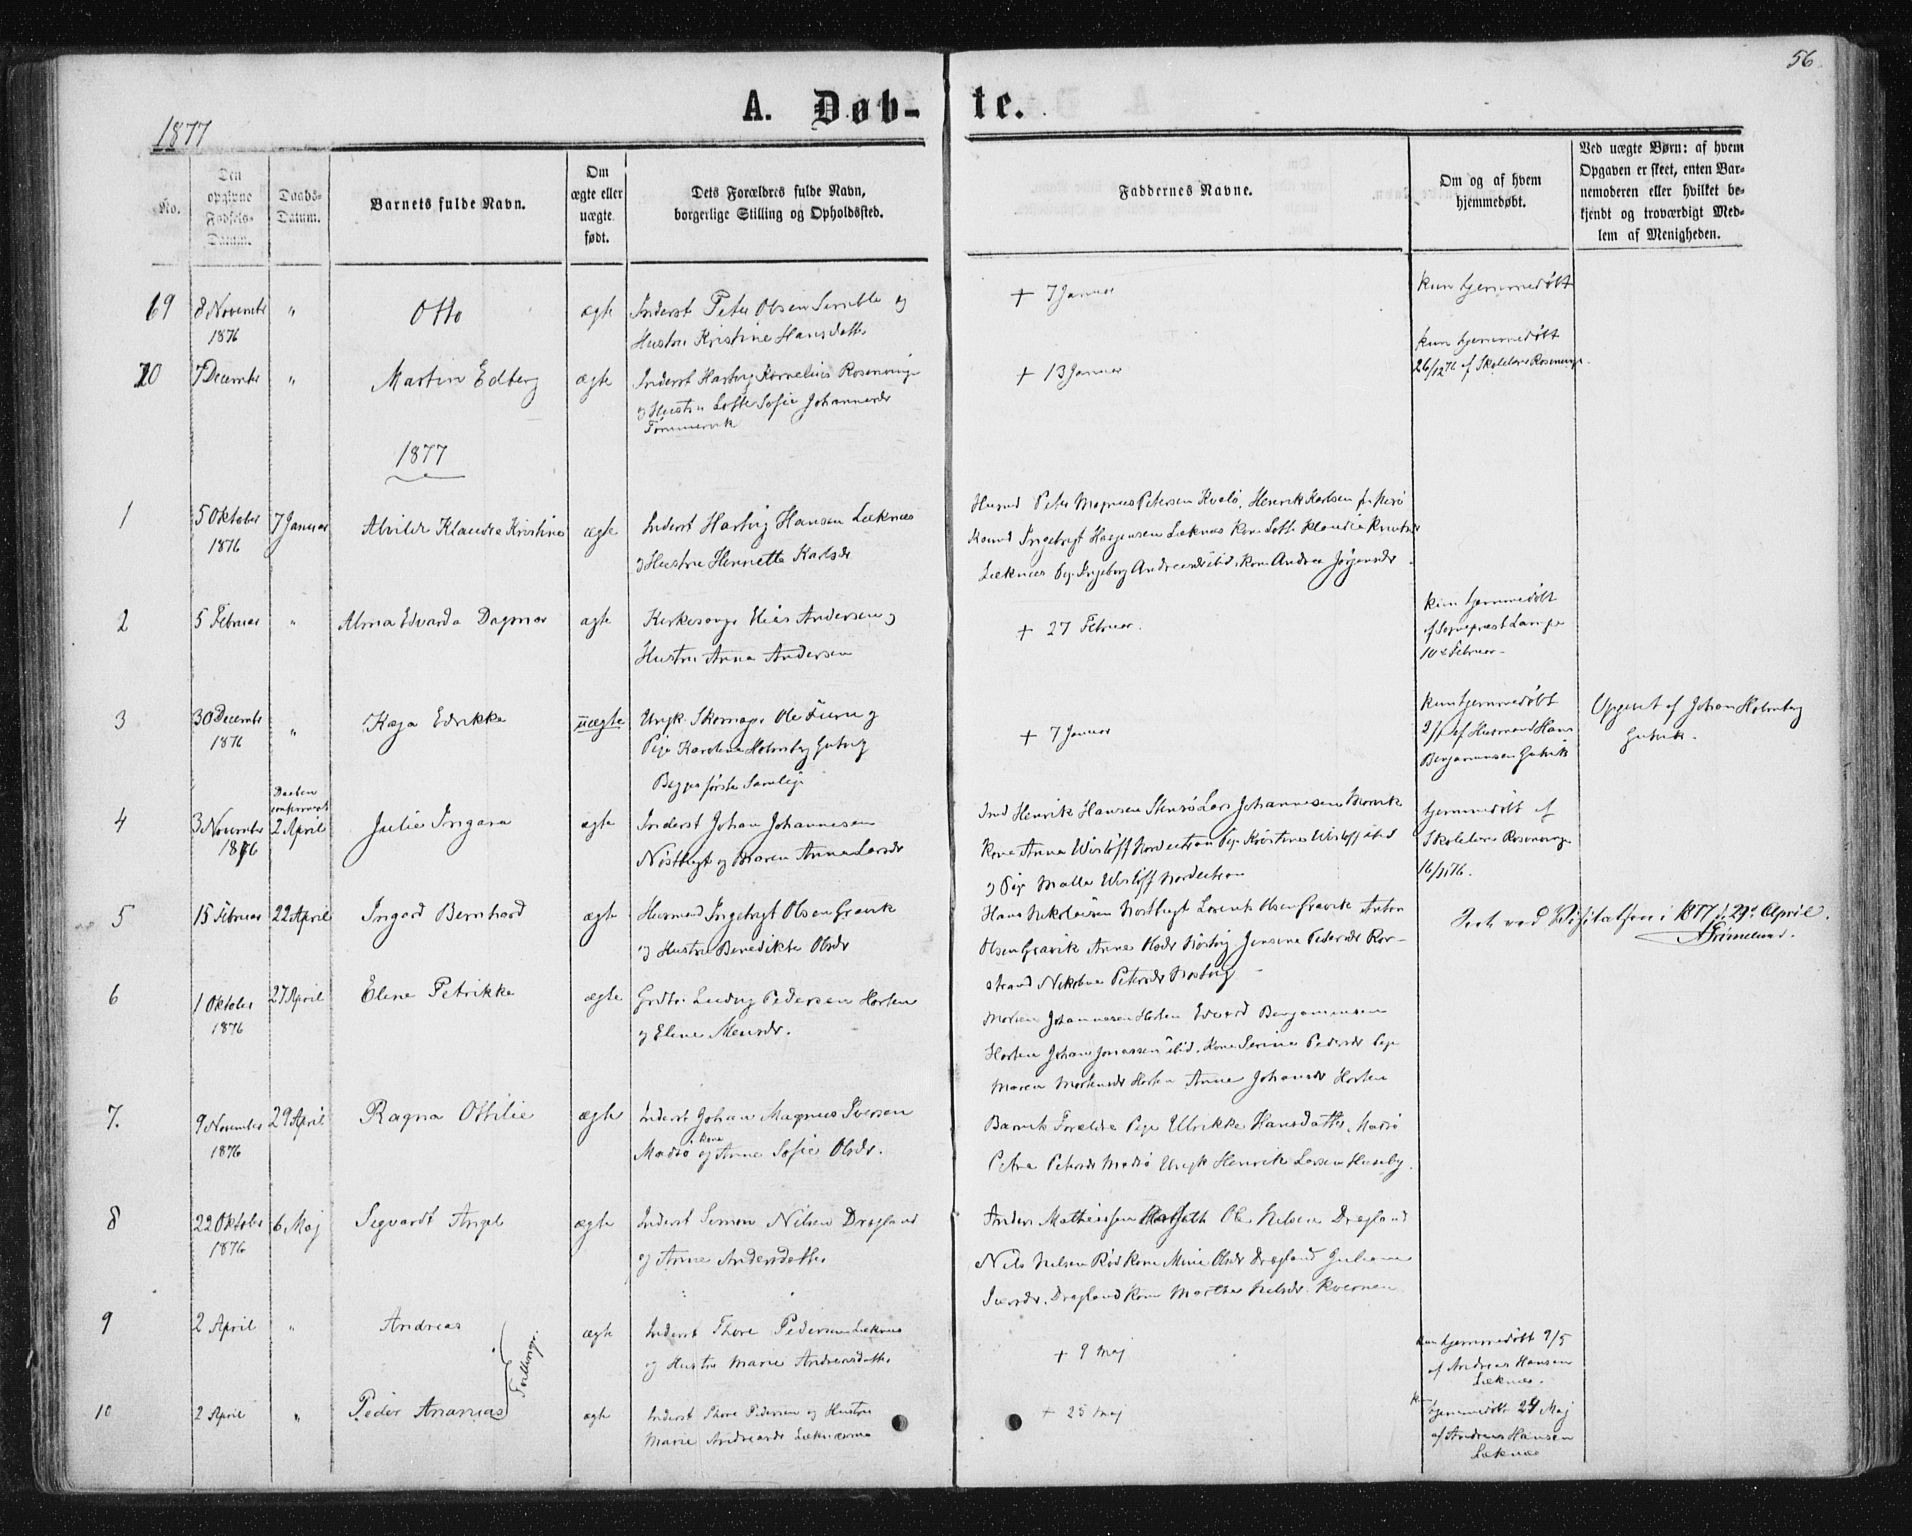 56.
1877
A. Døb-te.
No.
Den opgivne Fødsels-Datum.
Daabs-Datum.
Barnets fulde Navn.
Om ægte eller uægte født.
Dets Forældres fulde Navn, borgerlige Stilling og Opholdssted.
Faddernes Navne.
Om og af hvem hjemmedøbt.
Ved uægte Børn: af hvem Opgaven er skeet, enten Barnemoderen eller hvilket bekjendt og troværdigt Medlem af Menigheden.
69 8 November 1876 " Otto ægte Inderst Peter Olsen og
Hustru Kristine Hansdatter
+ 7 Januar
kun hjemmedøbt
70 7 December " Martin Edberg ægte Inderst Hartvig Kornelius Rosenvinge
og Hustru Lotte Sofie Johannesdr
Tømmervik
+ 13 Januar
kun hjemmedøbt
26/12 76 af Skolelærer Rosenvinge.
1877
1 5 Oktober 1876 7 Januar Alvilde Klaudia Kristine ægte Inderst Hartvig Hansen Læknæs
og Hustru Henriette Karlsdr
Husmd Peter Magnus Petersen Kvalø, Henrik Karlsen
Ingebrigt Læknæs Kone Lotte Klaudia
Læknæs Pige Ingeborg Andreasdr ibid. Kone Andrea Jørgensdr
2 5 Februar " Alma Edvarda Dagmar ægte Kirkesanger Elias Andersen og
Hustru Anna Andersen
+ 27 Februar.
kun hjemmedøbt
af Sognepræst Lampe
10de Februar
3 30 December 1876 " Kaja Edrikke uægte Ungk. Skomager Ole Furu og
Pige Karoline Holmberg Gutvig
Begges første Samleje
+ 7 Januar
kun hjemmedøbt
2/1 af Husmand Hans
Benjaminsen Gutvik
Opgivet af Johan Holmberg
Gutvik.
4 3 November 1876 Daaben confirmeret 2 April Julie Ingara ægte Inderst Johan Johannesen
Nøstbygt og Maren Anna Larsdr
Ind Henrik Hansen Lars Johannesen Morvik
Kone Anna Wisløff Pige Kristine Wisløff ibid
og Pige Malla Wisløff
hjemmedøbt af
Skolelærer Rosenvinge
16/11 76.
5 15 Februar 22 April Ingard Bernhard ægte Husmand Ingebrigt Olsen Gravik
og Hustru Benedikte Olsdr
Hans Nikolaisen Lorents Olsen Gravik Anton
Olsen Gravik Anne Jensine Pedersdr Ror-
strand Nikoline Petersdr
Seet ved Visitatsen i 1877 d. 29de April.
Grimelund.
6 1 Oktober 1876 27 April Elene Petrikke ægte Grdbr. Ludvig Pedersen Horten
og Elene Mensdr.
Morten Johannesen Horten Edvard Benjaminsen
Horten Johan Jonassen ibid. Kone Serine Pedersdr Pige
Maren Mortensdr Horten Anne Johansdr Horten
7. 9 November 1876 29 April Ragna Ottilie ægte Inderst Johan Magnus Iversen
Madsø og Kone Anne Sofie Olsdr.
Barnets Forældre Pige Ulrikke Hansdatter Madsø
Petra Petersdr Madsø Ungk Henrik Larsen Huseby.
8 22 Oktober 1876 6 Maj Sigvardt Angel ægte Inderst Simon Nilsen Dragland
og Anne Andersdatter
Anders Mathiassen Ole Nilsen Dragland
Nils Nilsen Rød Kone Mine Olsdr Dragland Juliane
Iversdr. Dragland Kone Martha Nilsdr. Kvernen
9 2 April " Andreas ægte Inderst Thore Pedersen Læknæs
og Hustru Marie Andreasdatter
+ 9 Maj
kun hjemmedøbt 9/5
af Andreas Hansen
Læknæs.
Tvillinger.
10 2 April " Peder Ananias ægte Inderst Thore Pedersen og Hustru
Marie Andreasdr Læknæs
+ 25 Maj
kun hjemmedøbt 24 Maj
af Andreas Hansen
Læknæs